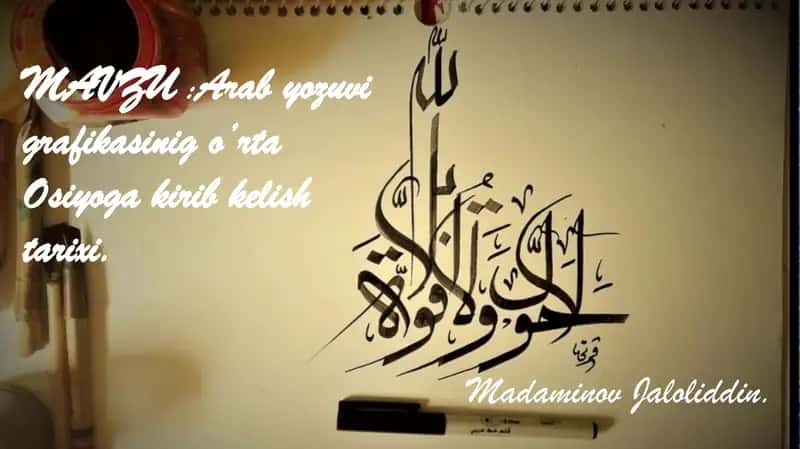 MAVZU :Arab yozuvi
grafikasinig o'rta
Osiyoga kirib kelish
tarixi.
لا حول ولا قوة إلا بالله
Madaminov Jaloliddin.